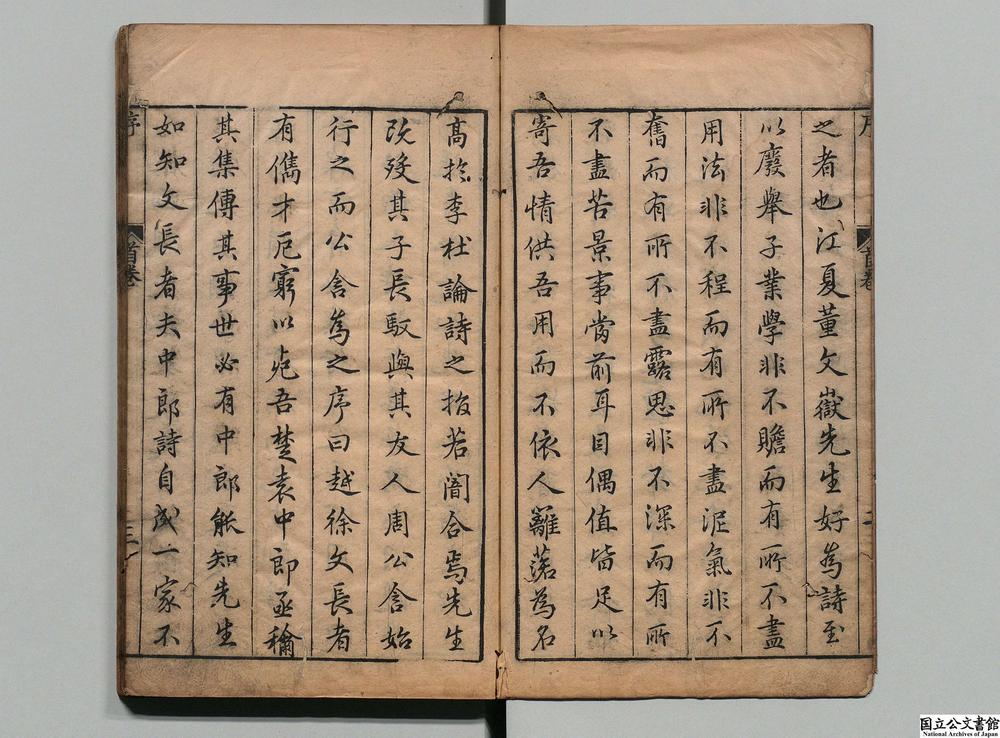 之者也江夏董文嶽先生好為詩至
以廢舉子業學非不贍而有所不盡
用法非不程而有所不盡泥氣非不
奮而有所不盡露思非不深而有所
不盡苦景事當前耳目偶值皆足以
寄吾情供吾用而不依人籬落為名
高於李杜論詩之指若闇合焉先生
既歿其子長馭與其友人周公含始
行之而公含為之序曰越徐文長者
有儁才厄窮以死吾楚袁中郎亟稱
其集傳其事世必有中郎能知先生
如知文長者夫中郎詩自成一家不
序
首卷
三
序
首卷
二
国立公文書館
National Archives of Japan